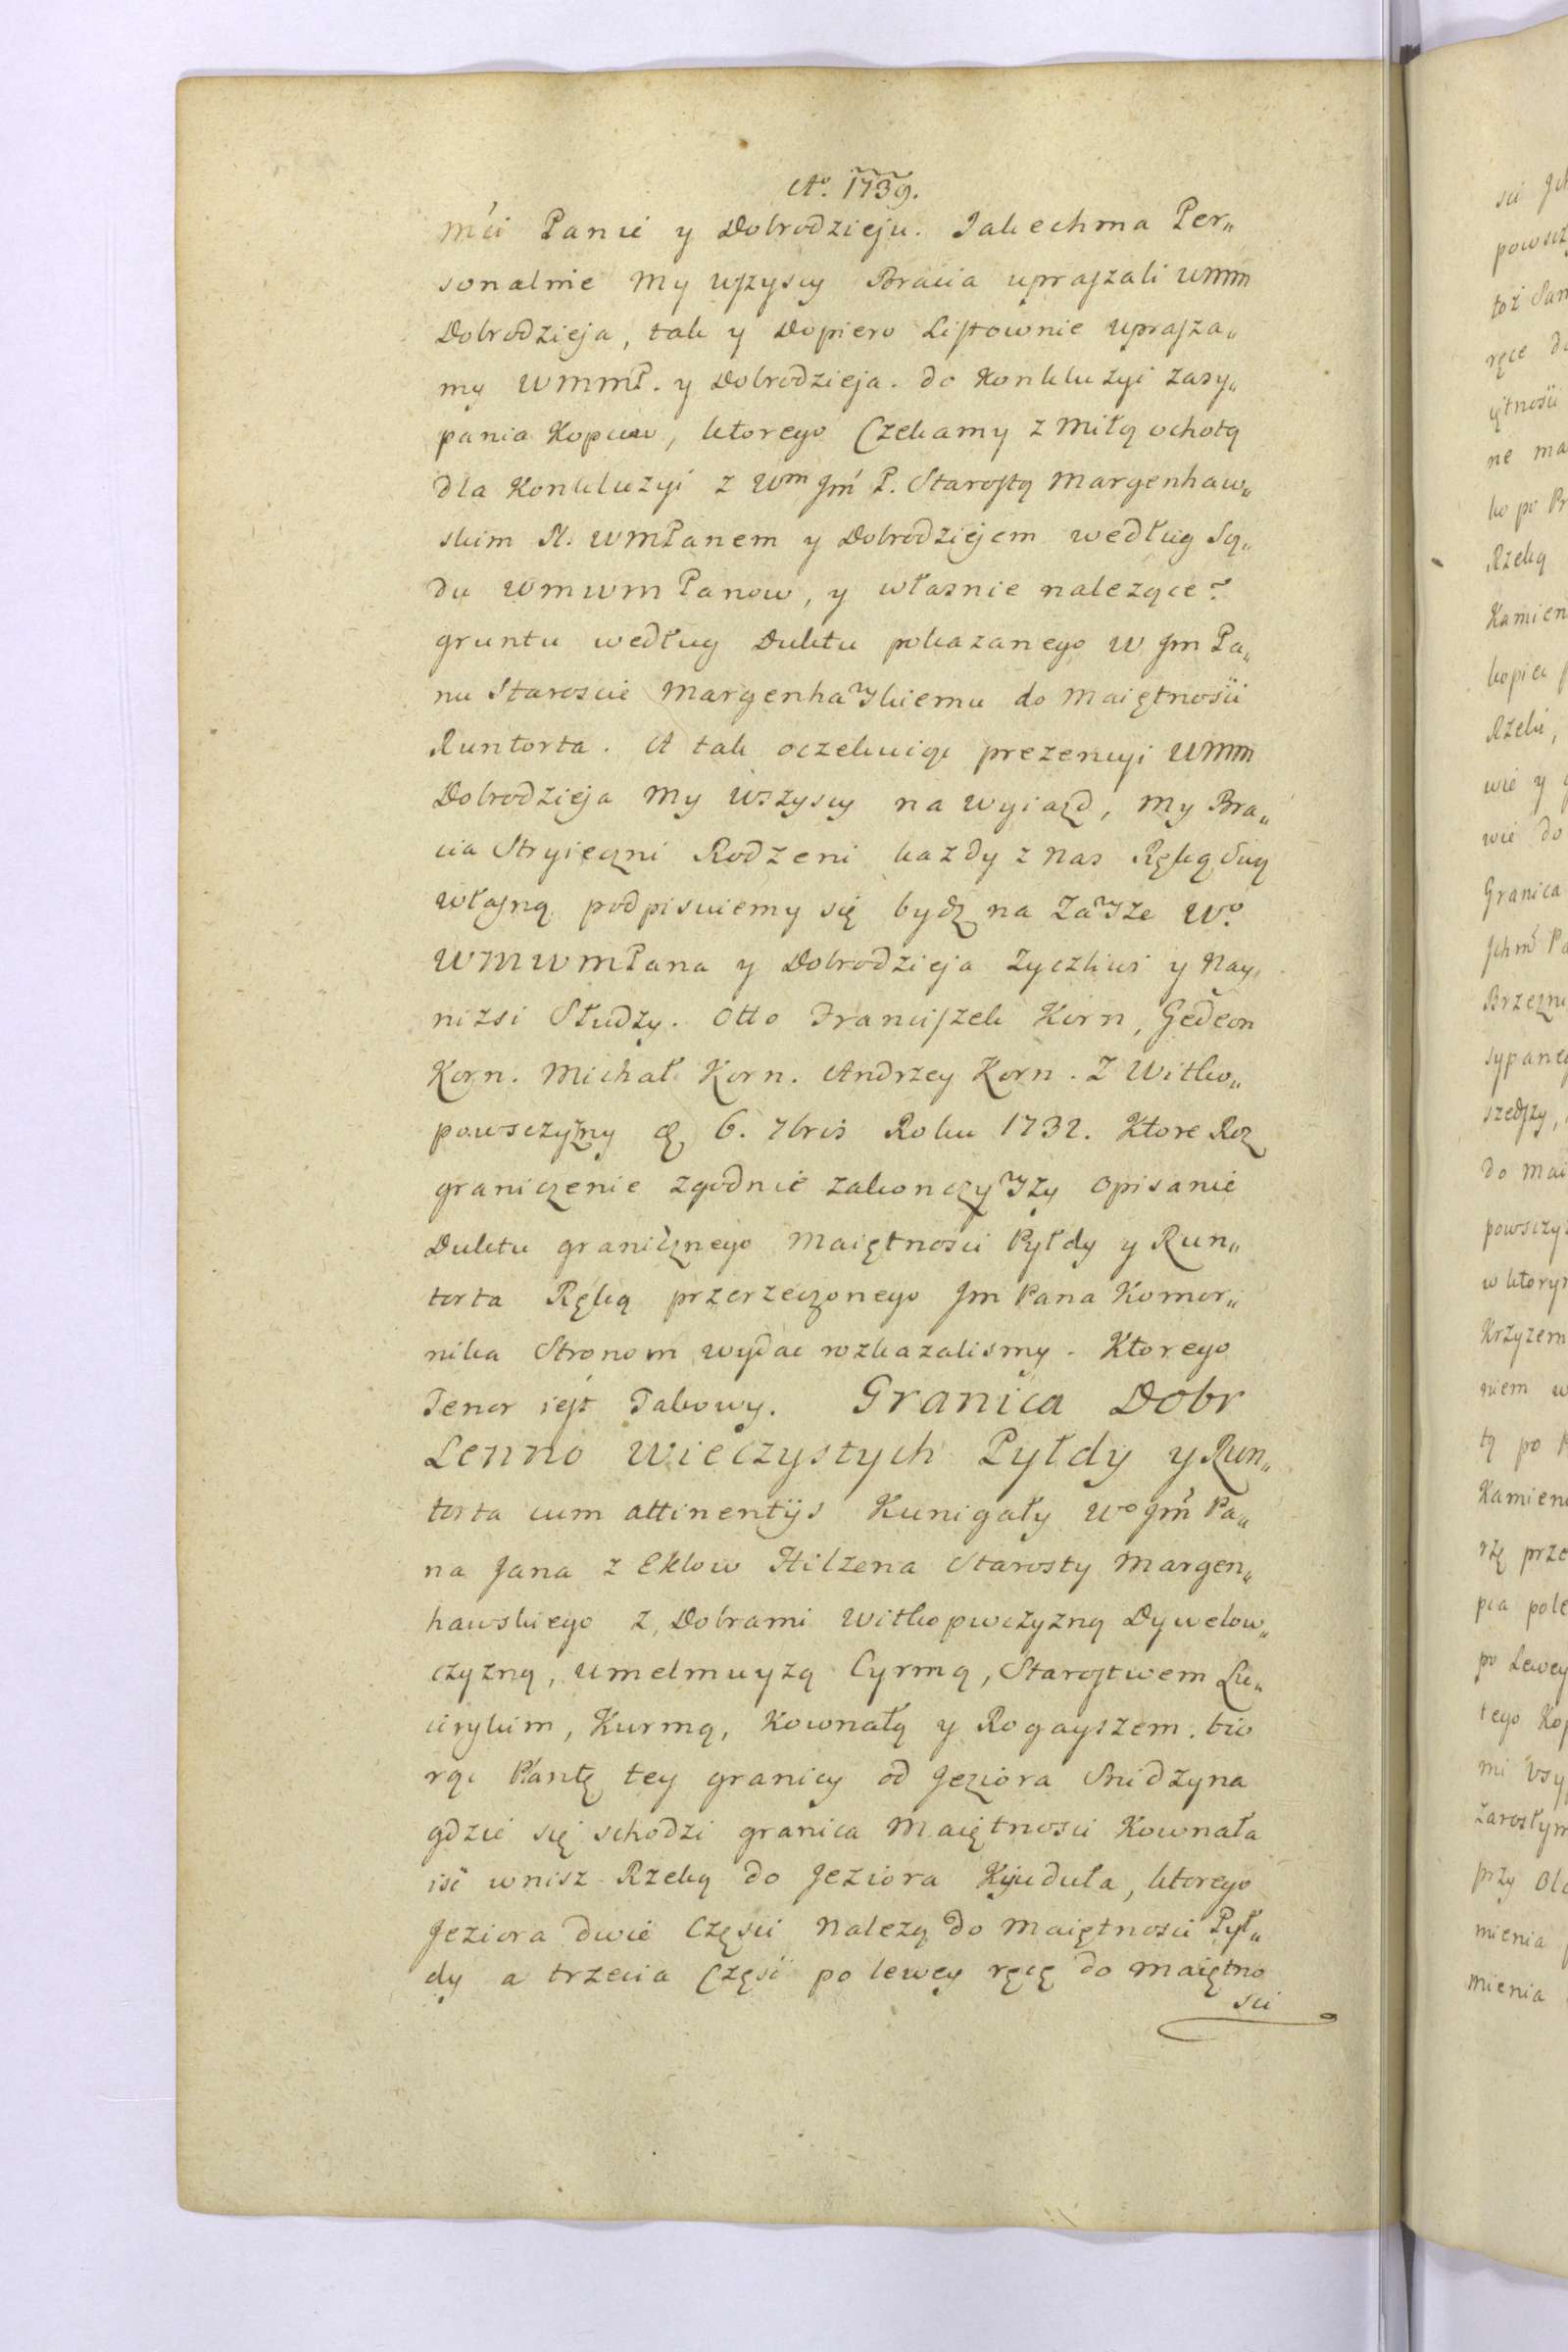 Ao. 1739.
Mći Panie y Dobrodzieju. Jakechma Per„
sonalnie My wszyscy Bracia upraszali WMM
Dobrodzieja, tak y Dopiero Listownie uprasza„
my WMMP. y Dobrodzieja. do Konkluzyi zasy„
pania Kopcow, ktorego Czekamy z Miłą ochotą
dla Konkluzyi z Wm Jm P. Starostą Margenhaw„
skim N. WMPanem y Dobrodziejem według Są„
du WMWM Panow, y własnie nalezące°
gruntu według Duktu pokazanego W Jm Pa„
nu Staroscie Margenhawskiemu do Maiętnosći
Runtorta. A tak oczekuiąc prezencyi WMM
Dobrodzieja My wszyscy na wyiazd, My Bra„
cia Stryieczni Rodzeni kazdy z Nas Ręką Swą
własną podpisuiemy się bydz na Zawsze Wo
WMWMPana y Dobrodzieja Zyczliwi y Nay„
nizsi Słudzy. Otto Franciszek Korn, Gedeon
Korn. Michał Korn. Andrzey Korn. Z Witko„
powsczyzny D. 6. 7bris Roku 1732. Ktore Roz
graniczenie zgodnie zakonczywszy Opisanie
Duktu granicznego Maiętnosci Pyłdy y Run„
torta Ręką przerzeczonego Jm Pana Komor„
nika Stronom wydac rozkazalismy. Ktorego
Tenor iest Takowy. Granica Dobr
Lenno Wieczystych Pyłdy y Run„
torta cum attinentijs Kunigały Wo Jm Pa„
na Jana z Eklow Hilzena Starosty Margen„
hawskiego z Dobrami Witkopwczyzną Dywelow„
czyzną, Umelmuyzą Cyrmą, Starostwem Lu„
cinskim, Kurmą, Kownatą y Rogayszem. bio
rąc Pantę tey granicy od Jeziora Snidzyna
gdzie się schodzi granica Maiętnosci Kownata
iść wnisz Rzeką do Jeziora Kijuduła, ktorego
Jeziora dwie Częsci Nalezą do Maiętnosci Pył„
dy a trzecia Częsć po lewey ręcę do Maiętno
sci